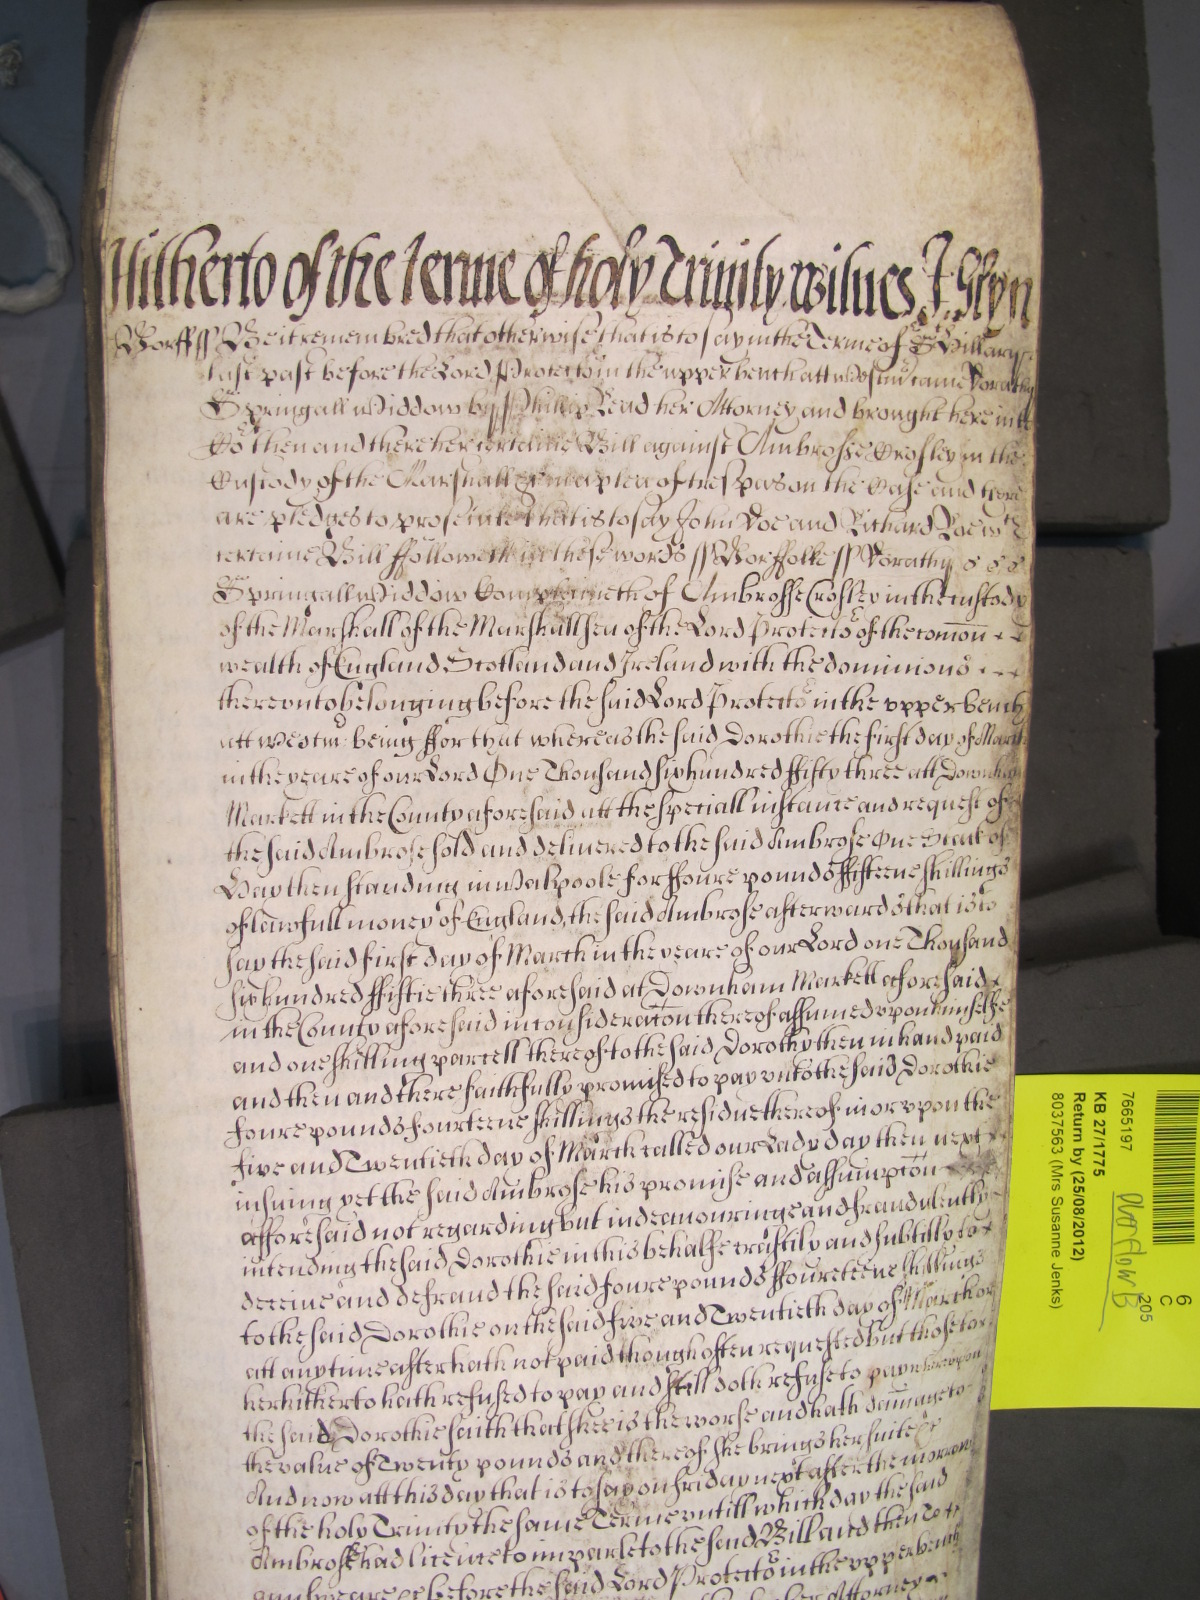 Hitherto of the Terme of holy Trinity Witnes J Glyn
Norff ss Be it remembred that otherwise that is to say in the Terme of St Hillary
last past before the Lord Protector in the upper bench att Westmr came Dorathy
Springall Widdow by Phillip Read her Attorney and brought here into
Cort then and there her certaine Bill against Ambrosse Crosley in the
Custody of the Marshall &c in a plea of tresspas on the Case and there
are pledges to prosecute that is to say John Doe and Richard Roe wch
certaine Bill ffolloweth in these words ss Norffolke ss Dorathy
Springall Widdow Complaineth of Ambrosse Crosley in the custody
of the Marshall of the Marshallsea of the Lord Protector of the comon
wealth of England Scotland and Ireland with the dominions
thereunto belonging before the said Lord Protector in the upper bench
att Westmr being ffor that whereas the said Dorothie the first day of March
in the yeare of our Lord One Thousand six hundred ffifty three att Downham
Markett in the County aforesaid att the speciall instance and request of
the said Ambrose sold and delivered to the said Ambrose One Stack of
Hay then standing in Walpoole for ffoure pounds ffifteene shillings
of lawfull money of England, the said Ambrose afterwards that is to
say the said first day of March in the yeare of our Lord one Thousand
six hundred ffiftie three aforesaid at Downham Markett aforesaid
in the County aforesaid in consideracon thereof assumed upon himselfe
and one shilling parcell thereof to the said Dorothy then in hand paid
and then and there faithfully promised to pay unto the said Dorothie
foure pounds fourteene shillings the residue thereof in or upon the
five and Twentieth day of March called our Lady day then next
insuing yet the said Ambrose his promise and assumpcon
afforesaid not regarding but indeavouringe and fraudulently
intending the said Dorothie in this behalfe craftily and subtilly to
deceive and defraud the said foure pounds ffoureteene shillings
to the said Dorothie on the said five and Twentieth day of March or
att any time after hath not paid though often requested but those to
her hitherto hath refused to pay and still doth refuse to pay whereupon
the said Dorothie saith that shee is the worse and hath damage to
the value of Twenty pounds and thereof she brings her suite &c
And now att this day that is to say on Friday next after the morrow
of the holy Trinity the same Terme untill which day the said
Ambrose had licence to imparle to the said Bill and then to
answeare &c before the said Lord Protector in the upper bench
Attorney
6
C
205
7665197
KB 27/1775
Return by (25/08/2012)
8037563 (Mrs Susanne Jenks)